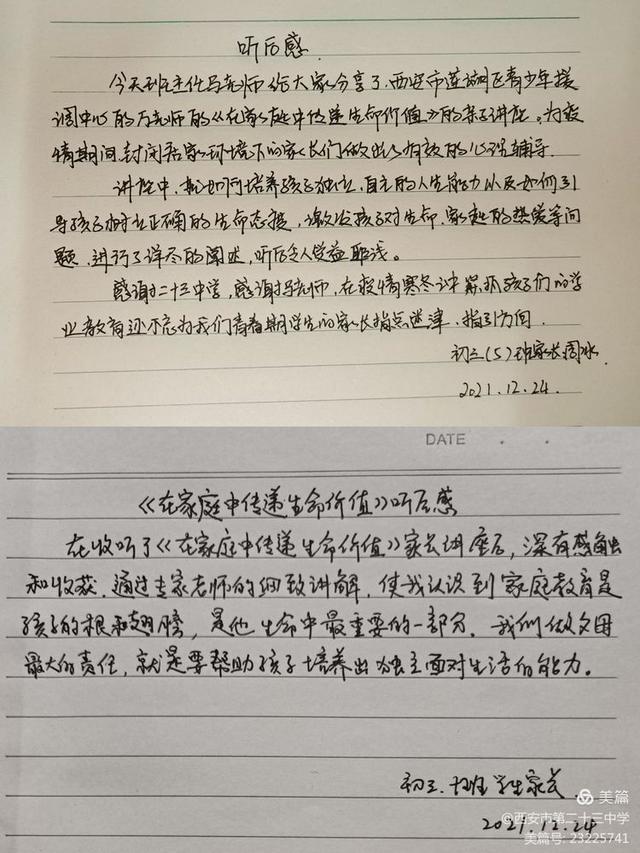 听后感
今天班主任马老师给大家分享了,西安市莲湖区青少年援
调中心的万老师的《在家庭中传递生命价值》的亲子讲座。为疫
情期间,封闭居家环境下的家长们做出了有效的心理辅导.
讲座中,就如何培养孩子独立,自主的人生能力以及如何引
导孩子树立正确的生命态度,激发孩子对生命.家庭的热爱等问
题,进行了详尽的阐述,听后令人受益匪浅。
感谢二十三中学,感谢马老师,在疫情寒冬之中紧抓孩子们的学
业教育还不忘为我们青春期学生的家长指点迷津、指引方向.
初三(5)班家长周冰.
2021.12.24.
DATE . .
《在家庭中传递生命价值》听后感
在收听了《在家庭中传递生命价值》家长讲座后,深有感触
和收获.通过专家老师的细致讲解,使我认识到家庭教育是
孩子的根和翅膀,是他生命中最重要的一部分.我们做父母
最大的责任,就是要帮助孩子培养出独立面对生活的能力。
初三. 班 学生家长.
2021.12.24
美篇
©西安市第二十三中学
美篇号: 23225741